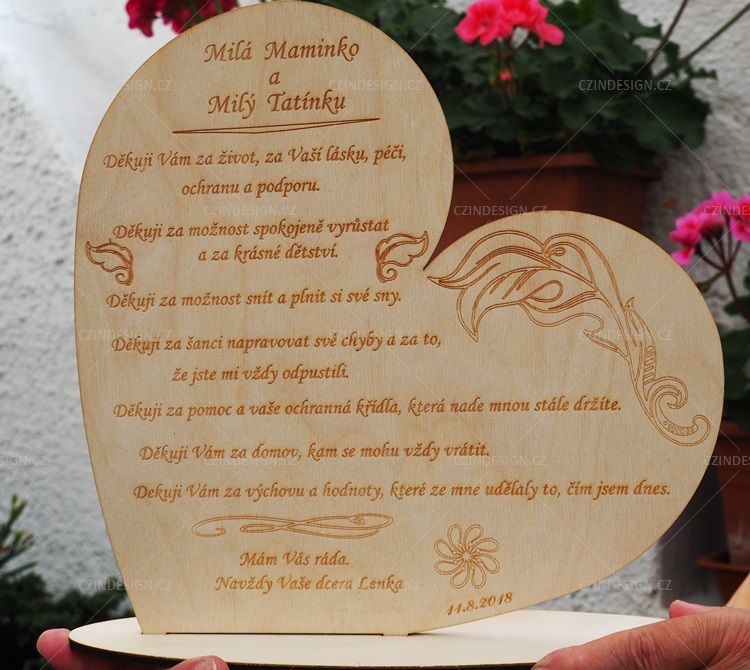 Milá Maminko
a
Milý Tatínku
Děkuji Vám za život, za Vaší lásku, péči,
ochranu a podporu.
Děkuji za možnost spokojeně vyrůstat
a za krásné dětství.
Děkuji za možnost snít a plnit si své sny.
Děkuji za šanci napravovat své chyby a za to,
že jste mi vždy odpustili.
Děkuji za pomoc a vaše ochranná křídla, která nade mnou stále držíte.
Děkuji Vám za domov, kam se mohu vždy vrátit.
Dekuji Vám za výchovu a hodnoty, které ze mne udělaly to, čím jsem dnes.
Mám Vás ráda.
Navždy Vaše dcera Lenka
11.8.2018
CZINDESIGN.CZ